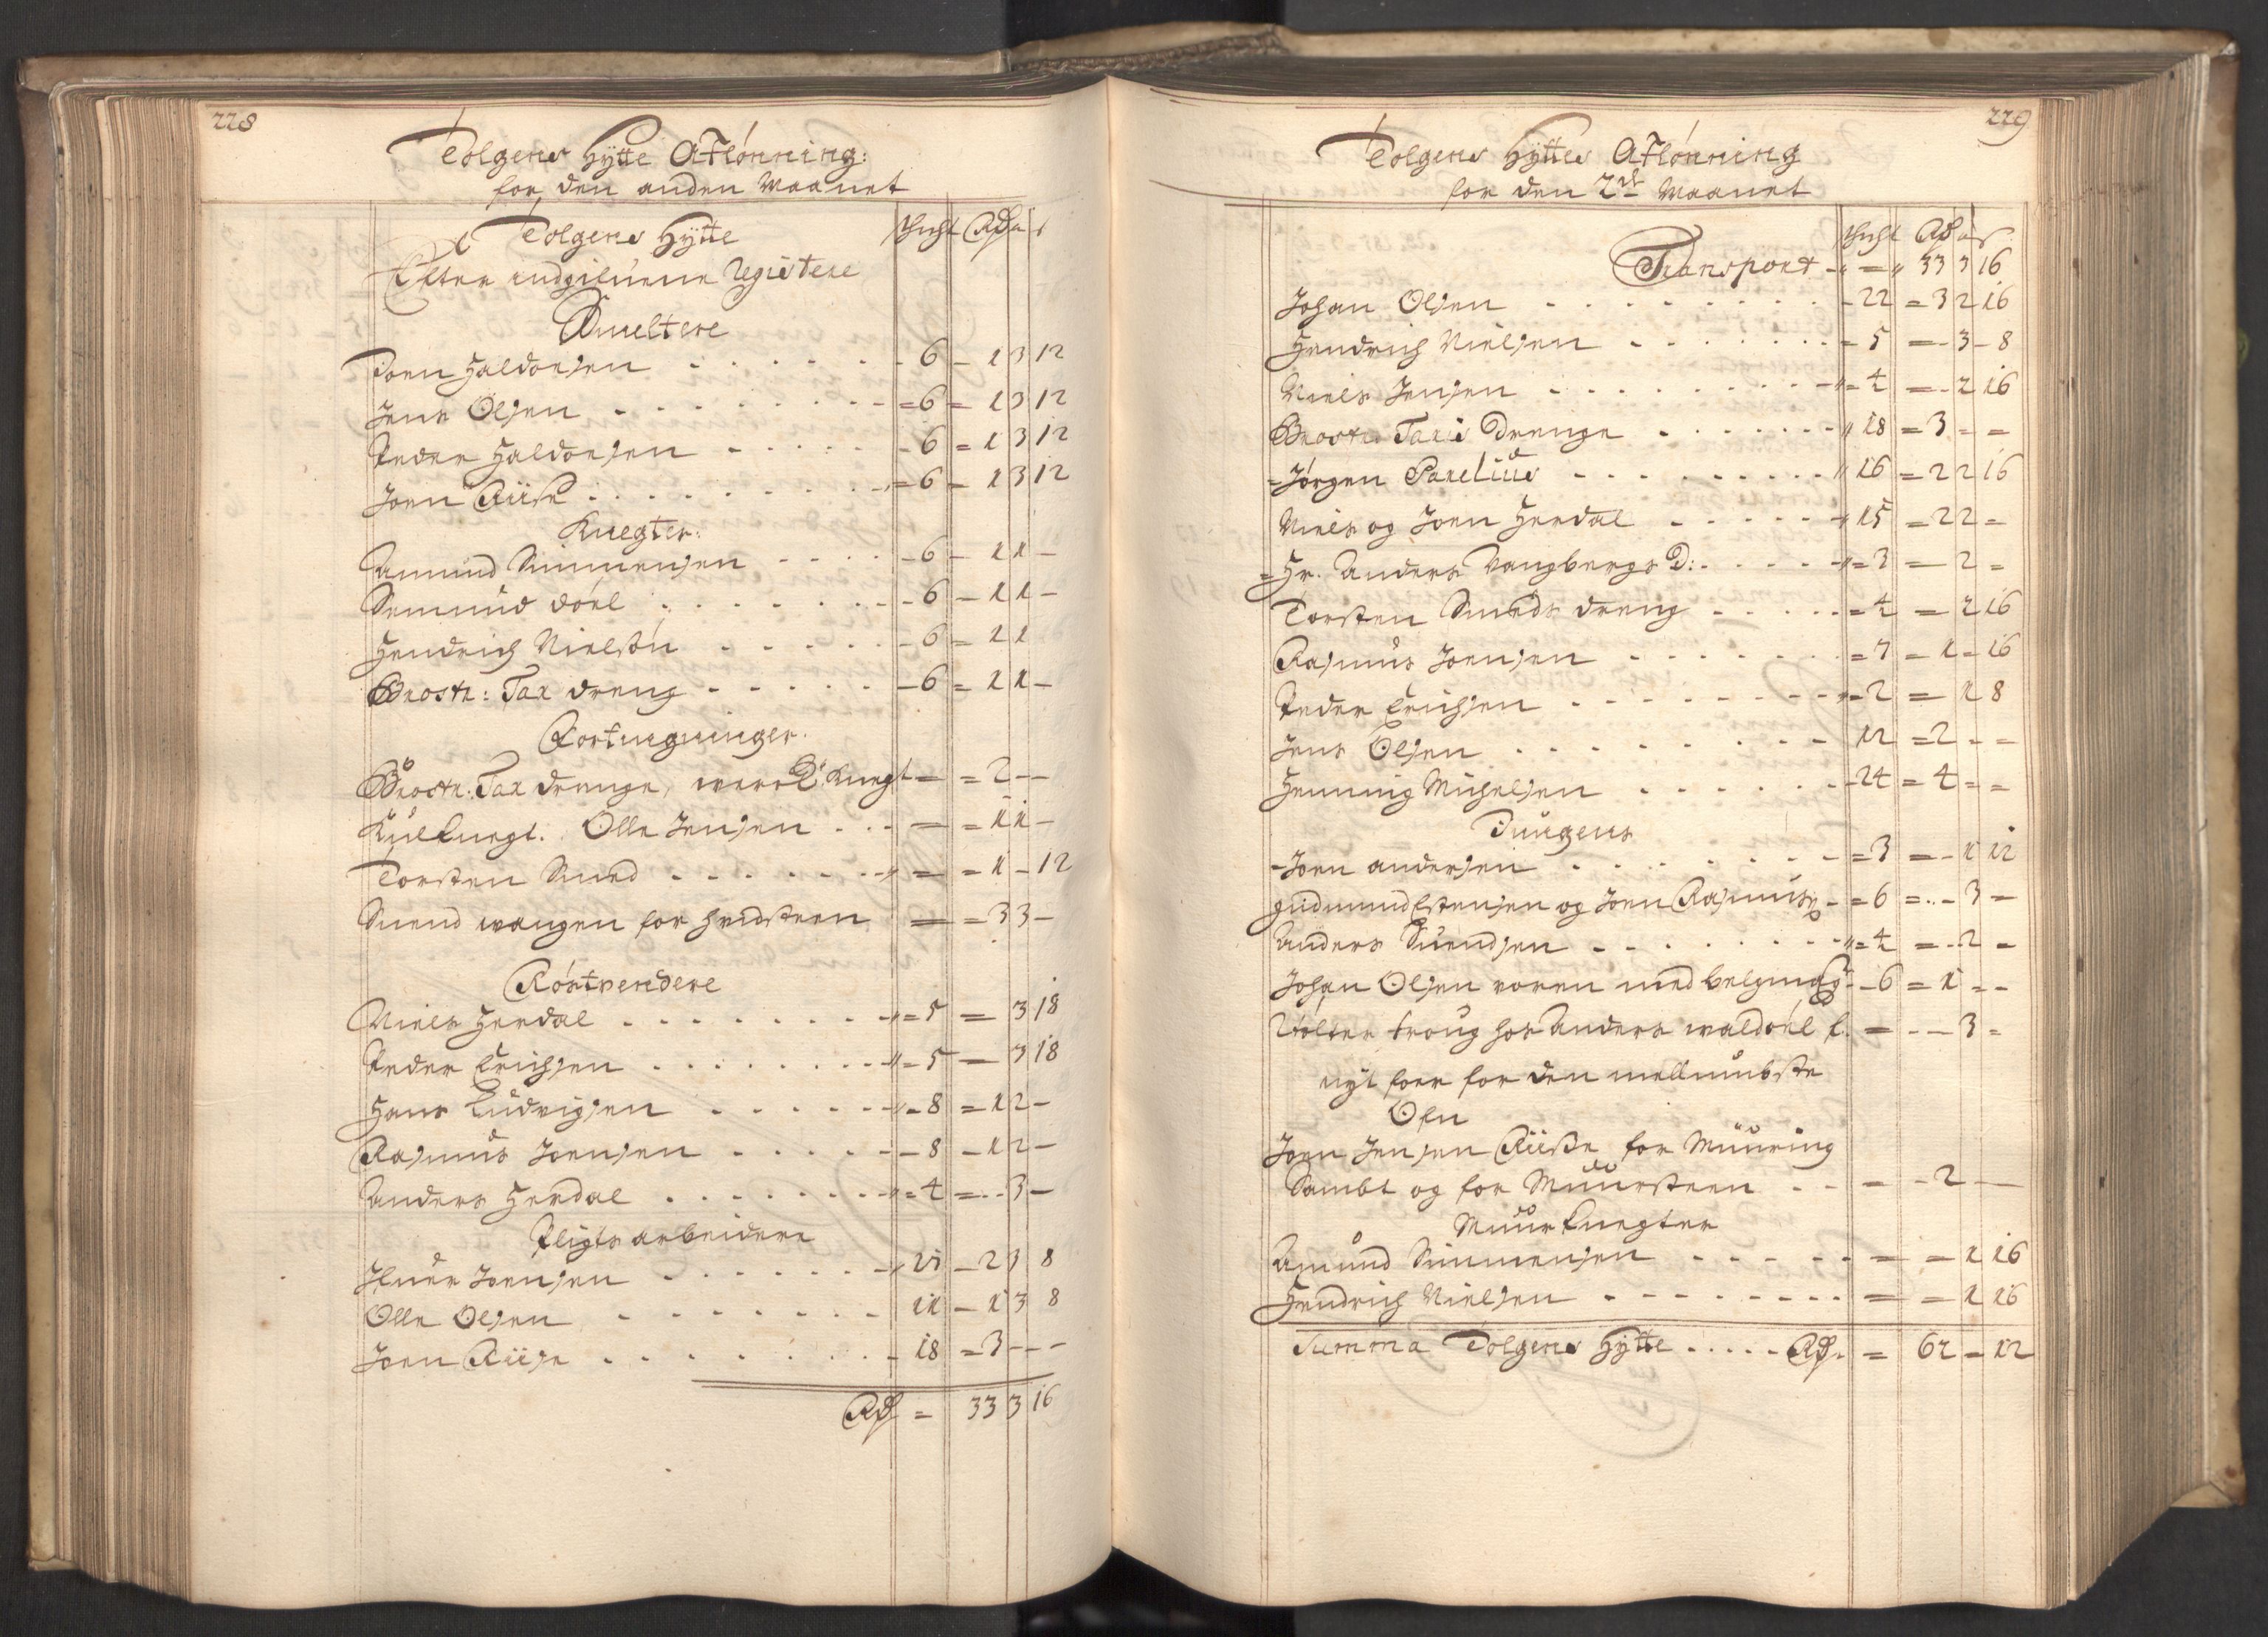 228
Tolgens Hÿtte Aflónning:
for den anden Maanet
Tolgens Hÿtte schicht Rdr a s
Efter indgifuene Registere
Smeltere
Joen Haldorsen - 6 - 1 3 12
Jens Olsen = 6 = 1 3 12
Peder Haldorsen - 6 = 1 3 12
Joen Riise = 6 - 1 3 12
Knegter:
Amund Simmensen - 6 - 1 1 -
Semund döel - 6 - 1 1 -
Hendrich Nielsön - 6 = 1 1
Brostr: Tax dreng - 6 = 1 1 -
Fortingninger.
Brostr: Tax drenge, Knegt = = 2 - -
Kulknegt. Olle Jensen = = 1 1 -
Torsten Smed = = 1 - 12
Suend wangen for hvidsteen = = 3 3 -
Róstvendere
Niels Herdal = 5 = 3 18
Peder Erichsen = 5 = 3 18
Hans Ludvigsen = 8 = 1 2 -
Rasmus Joensen - 8 - 1 2 -
Anders Herdal = 4 = - 3 -
Pligts arbeidere
Ifuer Joensen - 2 3 8
Olle Olsen 11 - 1 3 8
Joen Riise - 18 = 3 - -
Rdr = 33 3 16
229
Tolgens Hÿttes Aflónning
for den 2de Maanet
schicht Rdr a s
Transport = 33 3 16
Johan Olsen - 22 = 3 2 16
Hendrich Nielsen = 5 = - 3 - 8
Niels Jensen = 4 = - 2 16
Brostr. Taxis Drenge 18 = 3 = =
Jörgen Parelius 16 = 2 2 16
Niels og Joen Herdal 15 = 2 2 =
Hr. Anders Vangbergs D: = 3 = 2 =
Torsten Smeds dreng = 4 = 2 16
Rasmus Joensen = 7 - 1 - 16
Peder Erichsen = 2 = 1 8
Jens Olsen 12 = 2 - -
Henning Michelsen - 24 = 4 = =
Jungens
Joen andersen = 3 = - 1 12
gudmund Estensen og Joen Rasmus: = 6 = - 3 -
Anders Suendsen = 4 = - 2 =
Johan Olsen voren med belgmag: - 6 = 1 - -
troug hos Anders waldöel f. = - - 3 =
nÿt foer for den mellumbste
Ofn
Joen Jensen Riisse for Muuring
Sambt og for Muursteen = - 2 -
Muur knegter
Amund Simmensen = = 1 16
Hendrich Nielsen = = 1 16
Summa Tolgens Hÿtte Rdr. = 62 - 12